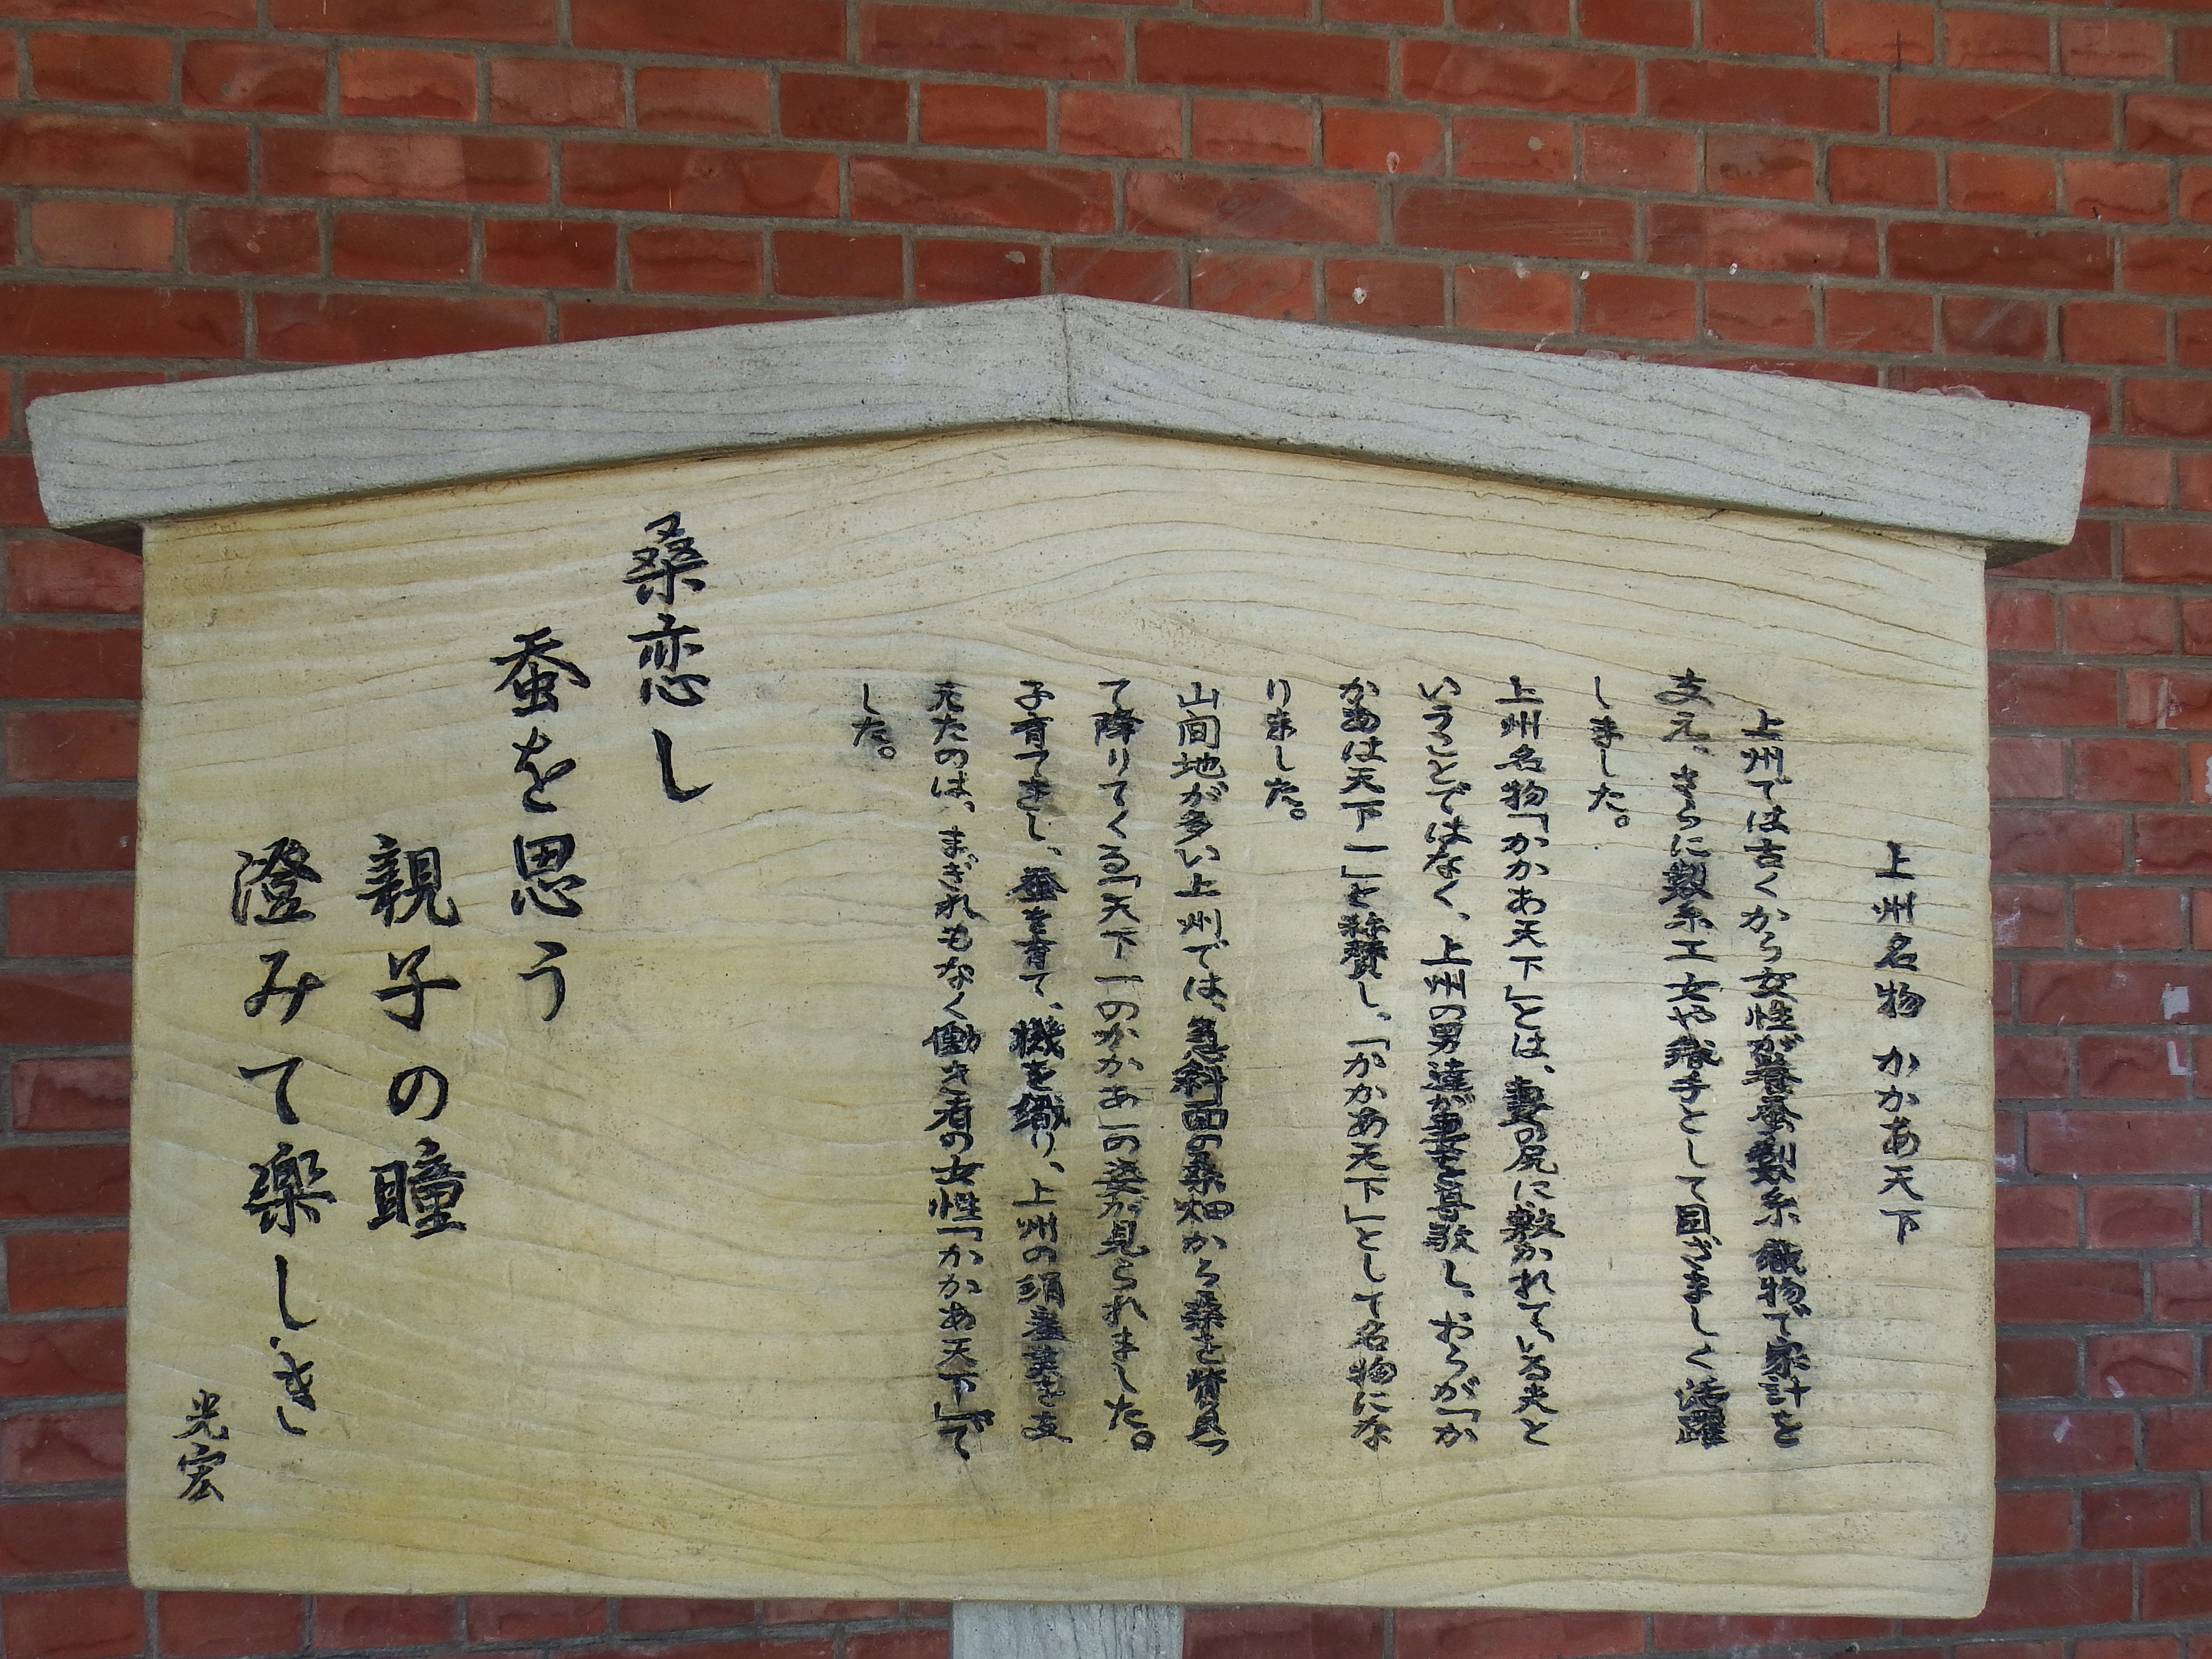 上州名物 かかあ天下
上州では古くから女性が養蚕製糸織物で家計を
支え、さらに製糸工女や織手として目ざましく活躍
しました。
上州名物「かかあ天下」とは、妻の尻に敷かれている夫と
いうことではなく、上州の男達が妻を尊敬し、おらが「か
かあは天下一」と称賛し、「かかあ天下」として名物にな
りました。
山間地が多い上州では、急斜面の桑畑から桑を背負っ
て降りてくる「天下一のかかあ」の姿が見られました。
子育てをし、蚕を育て、機を織り、上州の絹産業を支
えたのは、まぎれもなく働き者の女性「かかあ天下」で
した。
桑恋し
蚕を思う
親子の瞳
澄みて楽しき
光宏